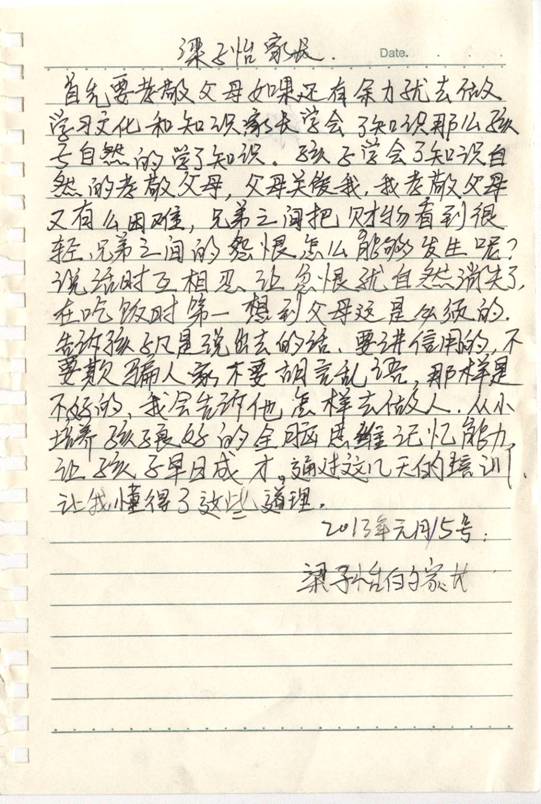 梁子怡家长.
Date.
首先要孝敬父母如果还有余力就去做
学习文化和知识家长学会了知识那么孩
子自然的学了知识. 孩子学会了知识自
然的孝敬父母, 父母关爱我, 我孝敬父母
又有么困难, 兄弟之间把财物看到很
轻兄弟之间的怨恨怎么能够发生呢?
说话时互相忍让忿恨就自然消失了,
在吃饭时第一想到父母这是必须的.
告诉孩子凡是说出去的话、要讲信用的, 不
要欺骗人家不要胡言乱语, 那样是
不好的, 我会告诉他怎样去做人. 从小
培养孩子良好的全脑思维记忆能力,
让孩子早日成才。通过这几天的培训,
让我懂得了这些道理.
2013年元月15号.
梁子怡的家长